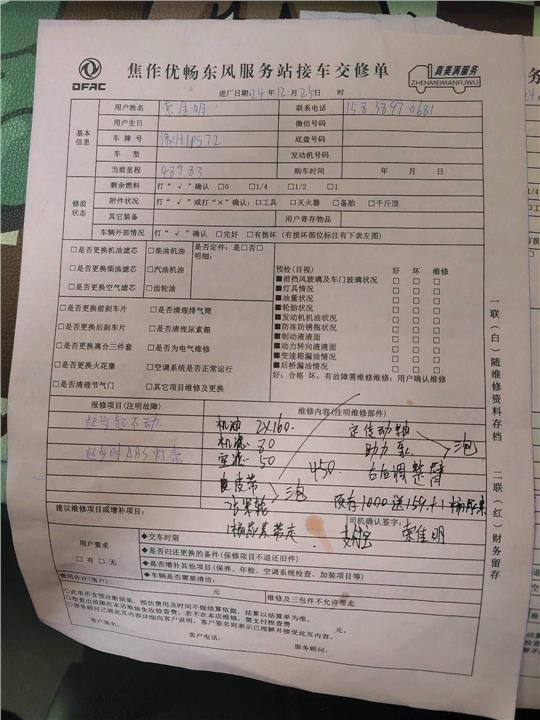 DFAC
焦作优畅东风服务站接车交修单
真美满服务
ZHENMEIMANFUWU
进厂日期:24年12月25日 时
基本信息
用户姓名 联系电话
用户生日 微信号码
车牌号 豫H1P572 底盘号码
车型 发动机号码
当前里程 48983 购车时间 年 月 日
修前状态
剩余燃料 打“√”确认 □0 □1/4 □1/2 □1
附件状况 打“√”或打“×”确认:□工具 □灭火器 □备胎 □千斤顶
其它装备 用户寄存物品
车辆外部情况 打“√”确认 □完好 □有损坏(有损坏部位标注有下表左图)
□是否更换机油滤芯 □柴油机油
□是否更换柴油滤芯 □汽油机油
□是否更换空气滤芯 □齿轮油
是否定件:是□否□
明细:
□是否更换前刹车片 □是否清理排气筒
□是否更换后刹车片 □是否清理尿素箱
□是否更换离合三件套 □是否为电气维修
□是否更换火花塞 □空调系统是否正常运行
□是否清理节气门 □其它项目维修及更换
预检(目视) 好 坏 维修
■前挡风玻璃及车门玻璃状况 □ □ □
■灯具情况 □ □ □
■油量状况 □ □ □
■轮胎状况 □ □ □
■发动机机油状况 □ □ □
■防冻防锈瓶状况 □ □ □
■制动液液面 □ □ □
■动力转向液液面 □ □ □
■变速箱漏油情况 □ □ □
■后桥漏油情况 □ □ □
好:合格 坏:有故障需维修维修:用户确认维修
报修项目(注明故障) 维修内容(注明维修部件)
起步起不动
起步时ABS灯亮
机油 2X160
机滤 80
空滤 50
皮带
涨紧轮
三泡
450
定传动轴
助力泵
右后调整臂
三泡
预存1000送159+1桶尿素
建议维修项目或增补项目:
1桶尿素带走
司机确认签字:
用户要求
□有 □无
◆交车时限
◆是否归还更换的备件(保修项目不退还旧件)
◆是否增补其他项目(保养、年检、空调系统检查、加装项目等)
◆车辆是否需要清洁:
费用合计(客户): 元 维修及三包件不允许带走
○此单所含预诊断结果,预估费用及时间不做结算依据,结算以结算单为准。
○检查出故障在本店维修免收检查费,若不在本店维修,需支付检查费 元。
○服务顾问已将此页内容详细向客户说明,客户签名则表示已理解并接受此页内容。
客户签名: 客户电话: 服务顾问:
一联(白)随维修资料存档
二联(红)财务留存